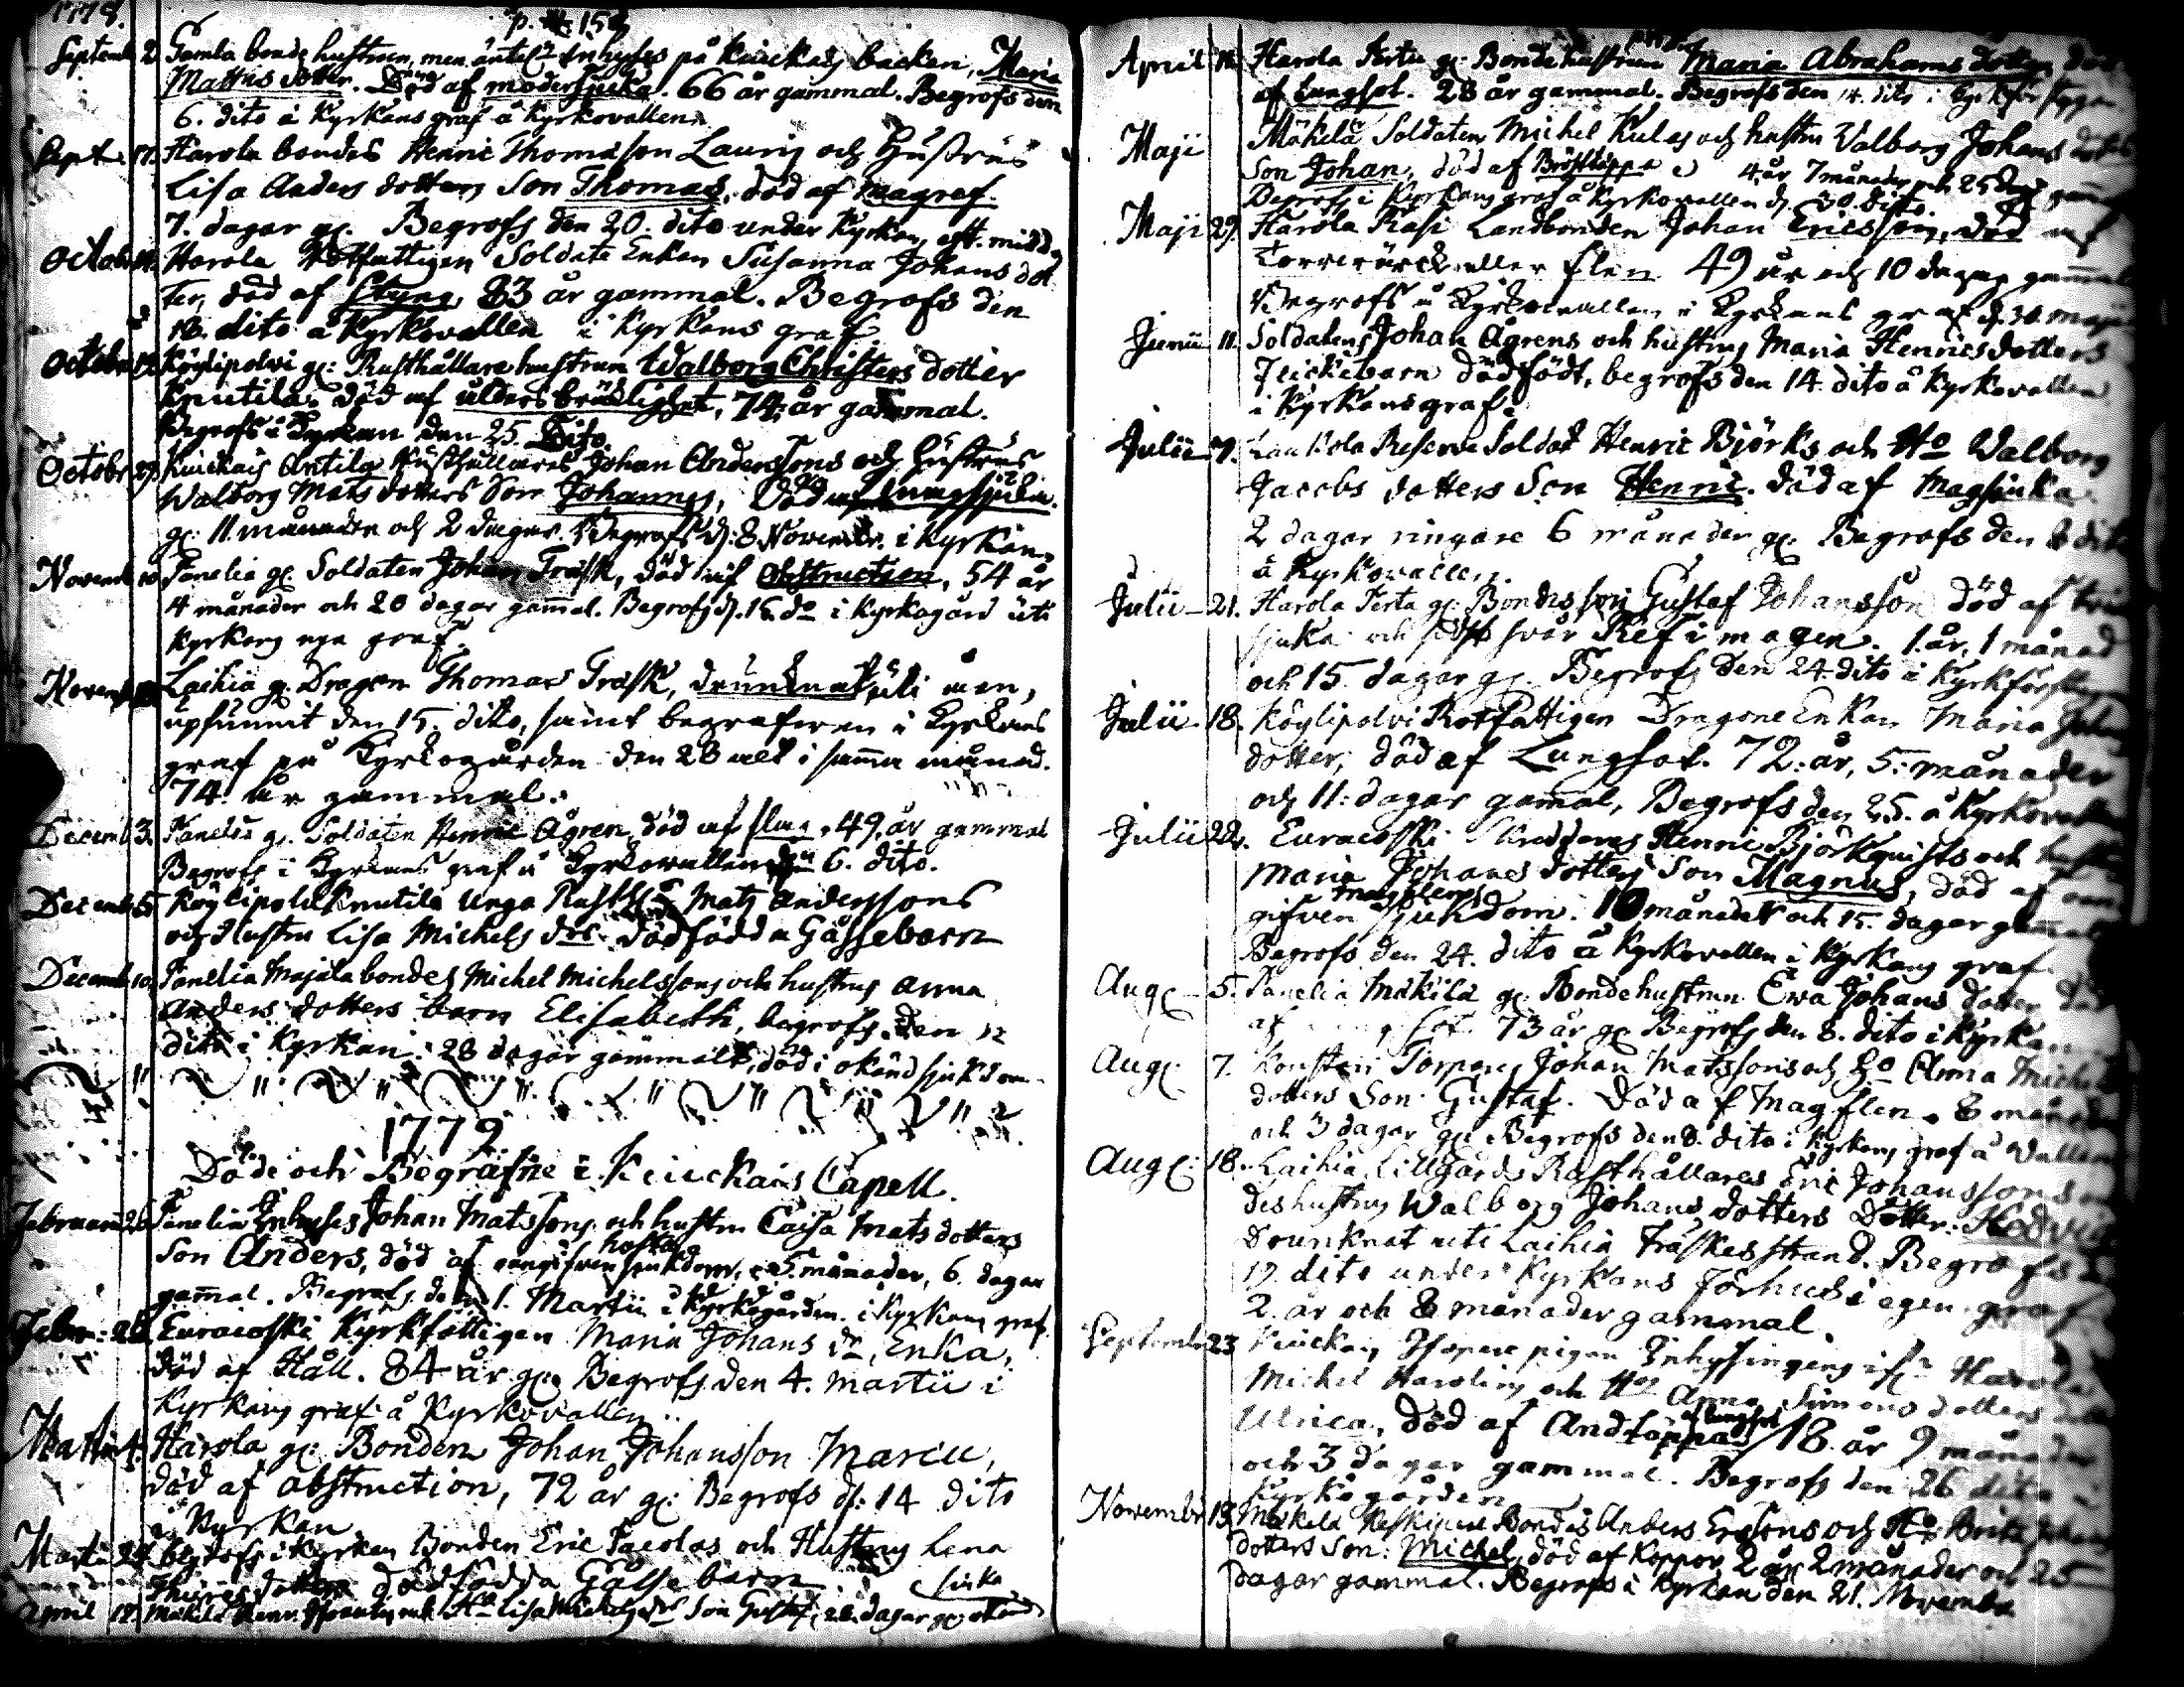 1778.
p. 159
Septemb 2. Gamla bonde hustrun, men äntel. Inhyses på Keuckais backen, Maria
Mattus dotter. Död af modersjuka. 66 år gammal. Begrofs den
6. dito å Kyrkans graf å Kyrkovallen
Sept. 17. Harola bondes Henric Thomasson Lauris och Hustrus
Lisa Anders dotters Son Thomas, död af magref.
7. dagar gl. Begrofs den 20. dito under Kyrkan, eft. midd.
Octob. Harola Rotfattigen Soldate Enkan Susanna Johans dot
ter, död af Styng 83 år gammal. Begrofs den
18. dito å Kyrkovallen i Kyrkans graf.
Octobr Köylipolvi gl: Rusthållare hustrun Walborg Christers dotter
Knutila, död af ålders bräcklighet, 74 år gammal.
Begrofs i Kyrkan den 25. Dito
Octobr 27. Kiuckais Antila Rusthållares Johan Anderssons och Hustrus
Walborg Mats dotters Son Johannes, död af lungsjuka.
gl: 11. månader och 2 dagar. Begrofs d: 8 Novembr. i Kyrkan
Novemb 10 Panelia gl. Soldaten Johan Trask, död af obstruction, 54 år
4 månader och 20 dagar gamal. Begrofs d. 16. do i Kyrkogård uti
Kyrkans nya graf.
Novemb Laihia gl. Dragon Thomas Trask, drunknat uti åen,
upfunnit den 15. ditto, samt begrafven i Kyrkans
graf på Kyrkogården den 28 alt i samma månad.
74. år gammal.
Decemb 3. Panelia gl. Soldaten Henric Ågren, död af flen, 49. år gammal
Begrofs i Kyrkans graf å Kyrkovallen den 6. dito.
Decemb 5. Köylipolvi Knutila unga Rusth. Mats Anderssons
och Hustru Lisa Michels dors dödfödda Gåssebarn
Decemb 10. Panelia Majala bondes Michel Michelssons och hustrus Anna
Anders dotters barn Elisabeth, begrofs den 12
dito i Kyrkan. 28 dagar gammalt, död i okänd sjukdom
1779
Döde och Begrafne i Keuckais Capell.
Februarii 26 Panelia Inhyses Johan Matssons och hustru Caisa Mats dotters
hosta
Son Anders, död af oangifven sjukdom, 5. månader, 6. dagar
gammal. Begrofs den 1. Martii i Kyrkogården i Kyrkans graf.
Febru: 28 Euraioski Kyrkfattigen Maria Johans dr, Enka,
död af Håll. 84 år gl. Begrofs den 4. Martii i
Kyrkans graf å Kyrkovallen..
Martii Harola gl: Bonden Johan Johansson Marcu,
död af obstruction, 72 år gl: Begrofs d: 14 dito
i Kyrkan
Martii 24 Begrofs i Kyrkan Bonden Eric Jacolas och Hustrus Lena
Thures dotters dödfödda Gåsse barn
sjuka
April 12. Mäkilä Henr. och Ho Lisa Michels dors Son Gustaf, 22. dagar gl okänd
April Harola Perttu gl: Bonde hustrun Maria Abrahams dotter död
af Lungsot. 28 år gammal. Begrofs den 14. dito i
Maji Mäkelä Soldatens Michel Kulas och hustru Valborg Johans dotters
Son Johan, död af Bröstäppa 4 år 7 månader och 25 dagar gammal
Begrofs i Kyrkans graf å Kyrkovallen d. 30. dito.
Maji 29. Harola Rasi Landbonden Johan Ericsson, död af
Torrvärck eller flen 49 år och 10 dagar gammal
Begrofs å Kyrkovallen i Kyrkans graf d. 30. Maji
Junii 11. Soldatens Johan Ågrens och hustrus Maria Henrics dotters
Flickebarn dödfödt, begrofs den 14. dito å Kyrkovallen
i Kyrkans graf.
Julii 7. Laukola Reserve Soldat Henric Björks och Ho Walborg
Jacobs dotters Son Henric. död af Magsjuka
2 dagar ringare 6 månader gl. Begrofs den 8 dito
å Kyrkovallen.
Julii 21. Harola Perta gl: Bondes son Gustaf Johansson död af
sjuka och sidst svår Ref i magen. 1. år, 1 månad
och 15. dagar gl. Begrofs den 24. dito i Kyrkförstugan
Julii 18. Köylipolvi Rotfattigen Dragone Enkan Maria Johans
dotter, död af Lungsot. 72: år, 5: månader
och 11: dagar gamal, Begrofs den 25. å Kyrkovallen
Julii 22. Euraioski Skräddares Henric Björkquists och hustrus
Maria Johans dotters Son Magnus, död af oan
magflens
gifven sjukdom. 10 månader och 15. dagar gammal
Begrofs den 24. dito å Kyrkovallen i Kyrkans graf
Aug. 5. Panelia Mäkilä gl. Bondehustrun Ewa Johans dotter död
af sot 73 år gl. Begrofs den 8. dito i Kyrkan
Aug. 7. Torpares Johan Matssons och Ho Anna Michels
dotters Son Gustaf. Död af Magflen. 8 månader
och 3 dagar gl. Begrofs den 8. dito i Kyrkans graf å Vallen
Aug. 18. Laihia Lillgårds Rusthållares Eric Johanssons
des hustrus Walborg Johans dotters Dotter: Hedvig
Drunknat uti Laihia Träskes strand. Begrofs
19. dito under Kyrkans Förhus i egen graf
2. år och 8 månader gammal.
Septembr 23 Kiuckais pigan Inhysingens Harola
Michel Harolins och Hos Anna Simons dotters
af lungsot
Ulrica, död af Andtäppas 18. år 9 månader
och 3 dagar gammal. Begrofs den 26 dito i
Kyrkogården
Novembr 19. Mäkelä Keskipere Bondes Anders Ersons och Ho Brita Johans
dotters Son: Michel, död af Koppor 2 år 2 månader och 25
dagar gammal. Begrofs i Kyrkan den 21. Novembr